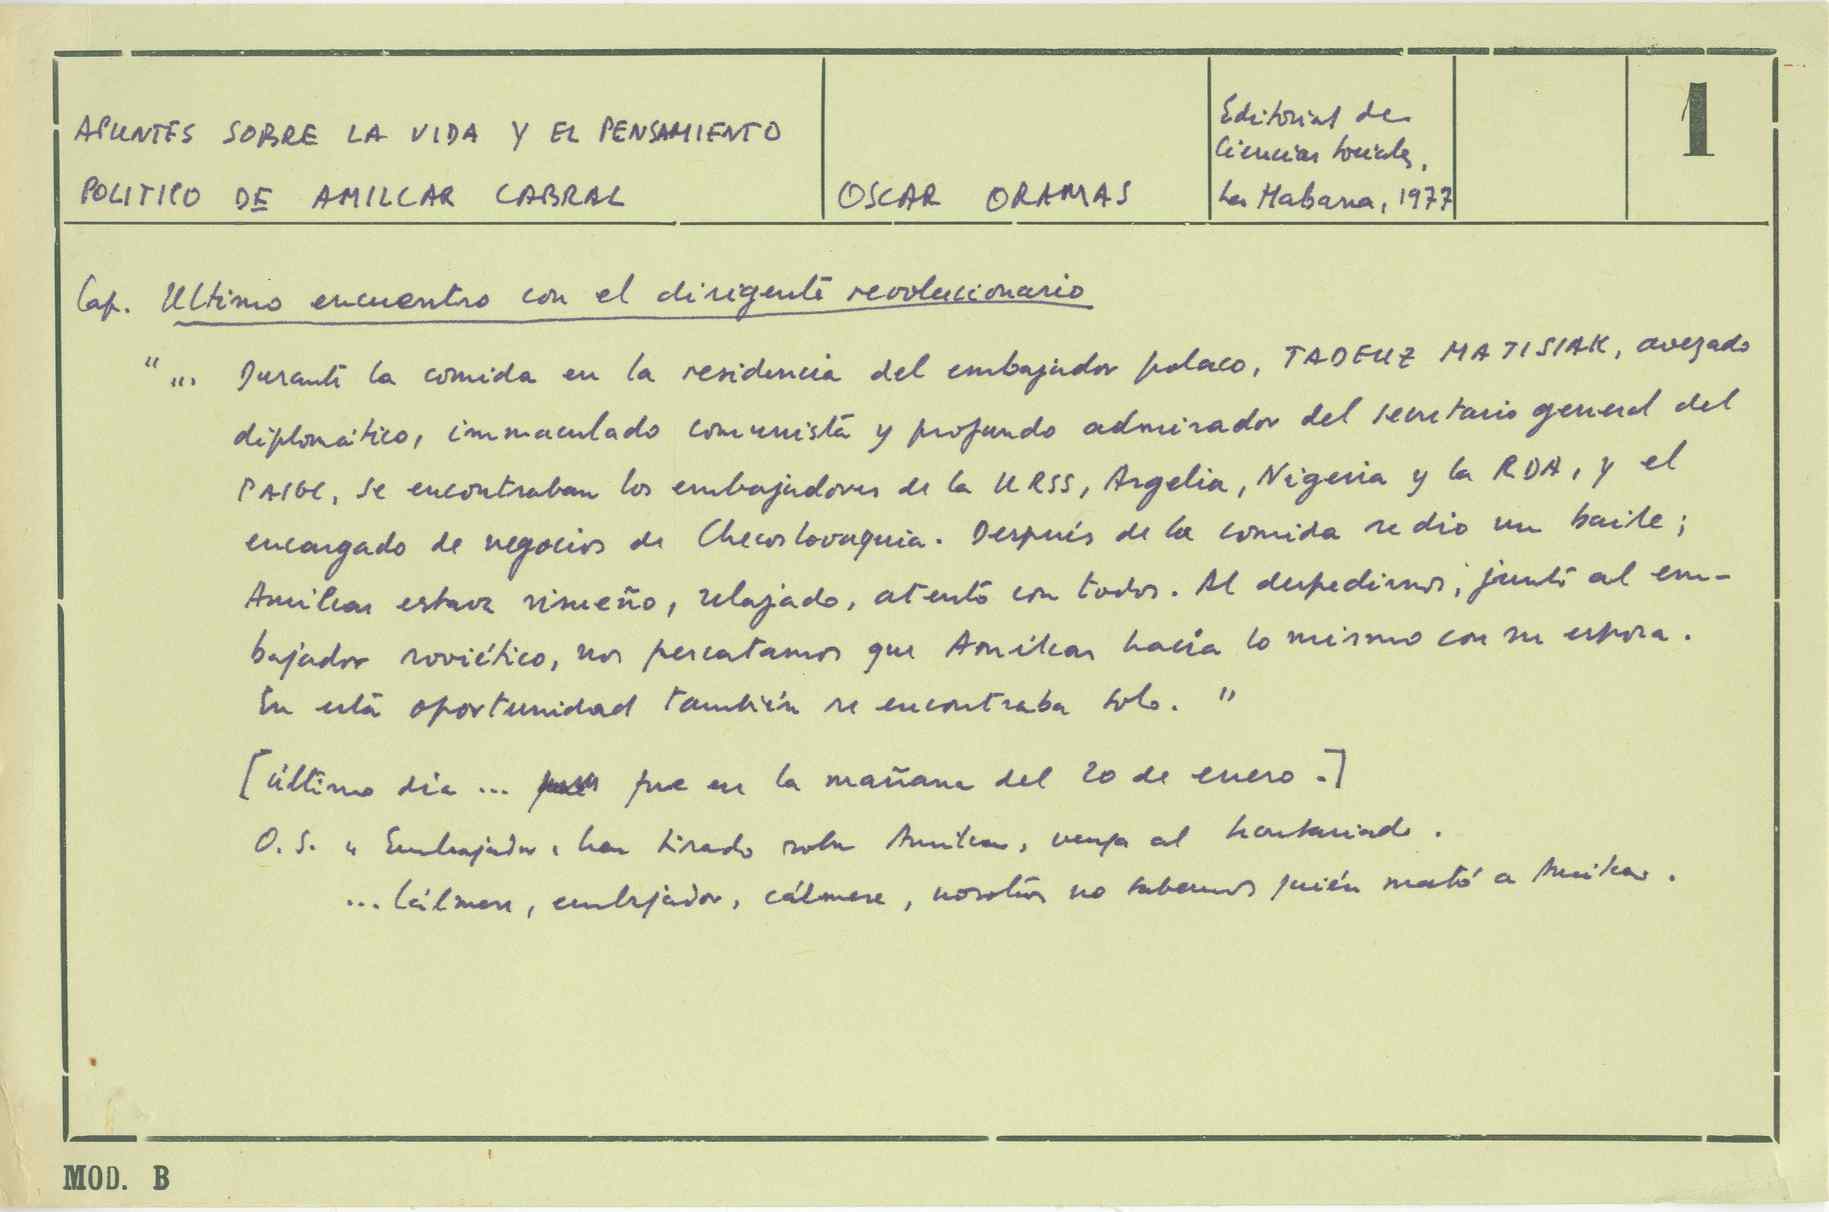 APUNTES SOBRE LA VIDA Y EL PENSAMIENTO
POLITICO DE AMILCAR CABRAL
OSCAR ORAMAS
Editorial de
Ciencias Sociales,
La Habana, 1977
1
Cap. Ultimo encuentro con el dirigente revolucionario
"... Durante la comida en la residencia del embajador polaco, TADEUZ MATISIAK, avezado
diplomático, immaculado comunista y profundo admirador del secretario general del
PAIGC, se encontraban los embajadores de la URSS, Argelia, Nigeria y la RDA, y el
encargado de negocios de Checoslovaquia. Después de la comida se dio un baile;
Amilcar estava risueño, relajado, atento con todos. Al despedirnos, junto al em-
bajador soviético, nos percatamos que Amilcar hacía lo mismo con su esposa.
En esta oportunidad también se encontraba solo."
[último dia ... fue en la mañana del 20 de enero.]
O.S. "Embajador, han tirado sobre Amilcar, venga al
... Cálmese, embajador, cálmese, nosotros no sabemos quién mató a Amilcar.
MOD. B